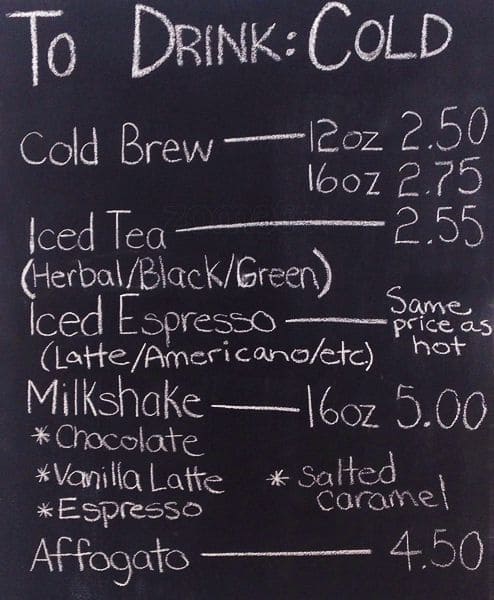 To Drink: Cold
Cold Brew — 12oz 2.50
16oz 2.75
Iced Tea — 2.55
(Herbal/Black/Green)
Iced Espresso — Same price as hot
(Latte/Americano/etc)
Milkshake — 16oz 5.00
*Chocolate
*Vanilla Latte * Salted caramel
*Espresso
Affogato — 4.50